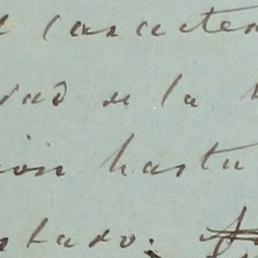 l caracter
dad de la
ion hasta
ntado.